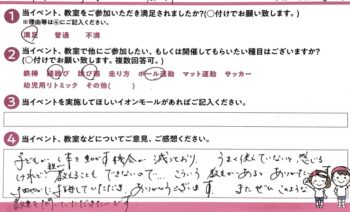 1 当イベント、教室をご参加いただき満足されましたか?(〇付けでお願い致します。)
※理由等は④にご記入ください。
満足 普通 不満
2 当イベント、教室で他にご参加したい、もしくは開催してもらいたい種目はございますか?
(〇付けでお願い致します。複数回答可。)
鉄棒 縄跳び 跳び箱 走り方 ボール運動 マット運動 サッカー
幼児用リトミック その他( )
3 当イベントを実施してほしいイオンモールがあればご記入ください。
4 当イベント、教室などについてご意見、ご感想ください。
子どもが 体を動かす機会が減っており、うまく使えていないと感じる
けれど 教えることもできないので… こういう教室があると ありがたい
していただき、ありがとうございます。 また ぜひ このような
教室を していただきたいです